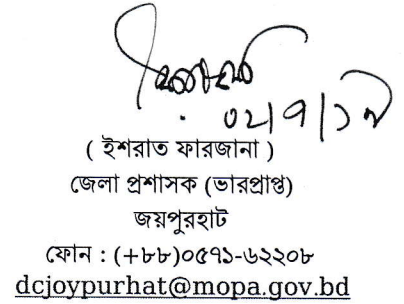 ( ইশরাত ফারজানা )
জেলা প্রশাসক (ভারপ্রাপ্ত)
জয়পুরহাট
ফোন : (+৮৮)০৫৭১-৬২২০৮
dcjoypurhat@mopa.gov.bd